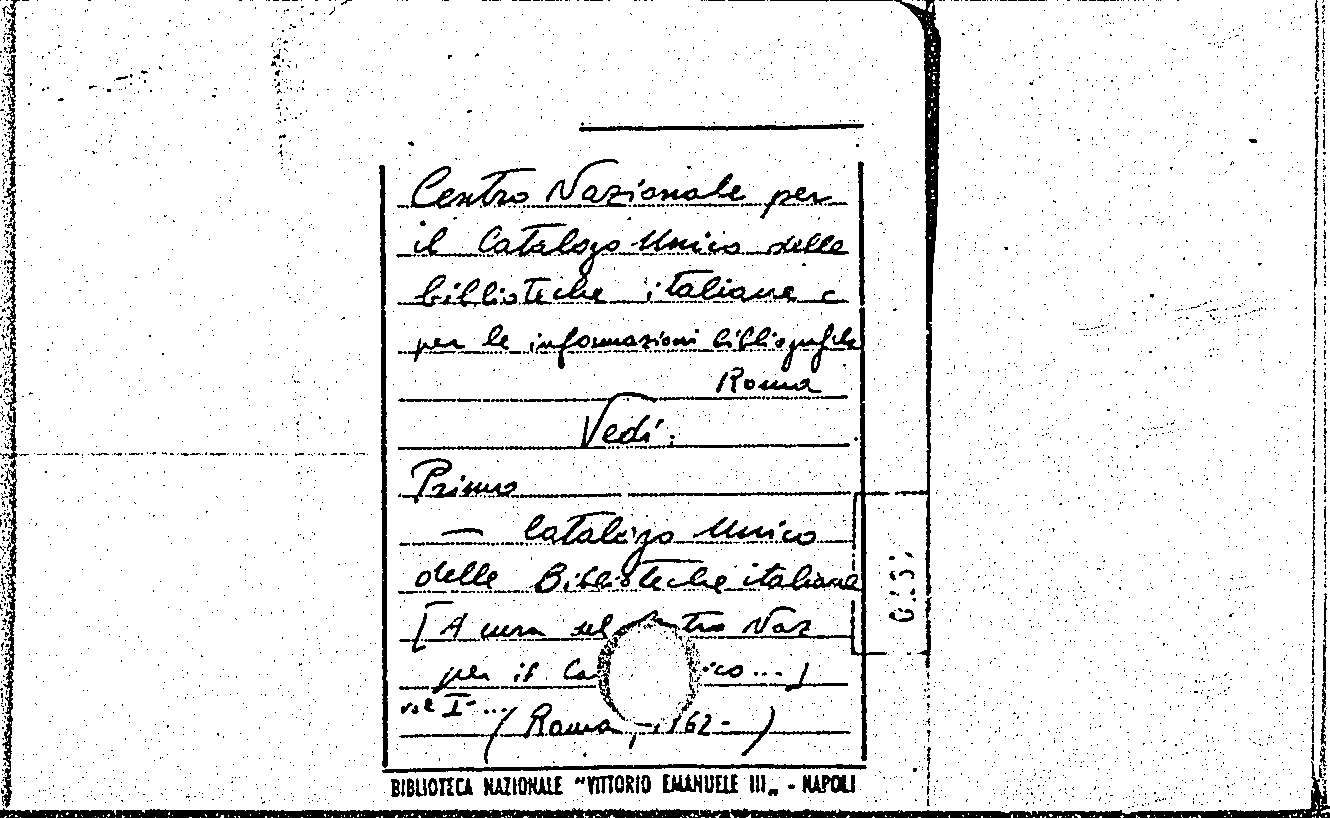 Centro Nazionale per
il Catalogo Unico delle
biblioteche italiane e
per le informazioni bibliografiche
Roma
Vedi:
Primo
— Catalogo Unico
delle Biblioteche italiane
[A cura del Centro Naz
per il Ca ico...]
vol I- ...
(Roma, 162- )
BIBLIOTECA NAZIONALE "VITTORIO EMANUELE III„ - NAPOLI